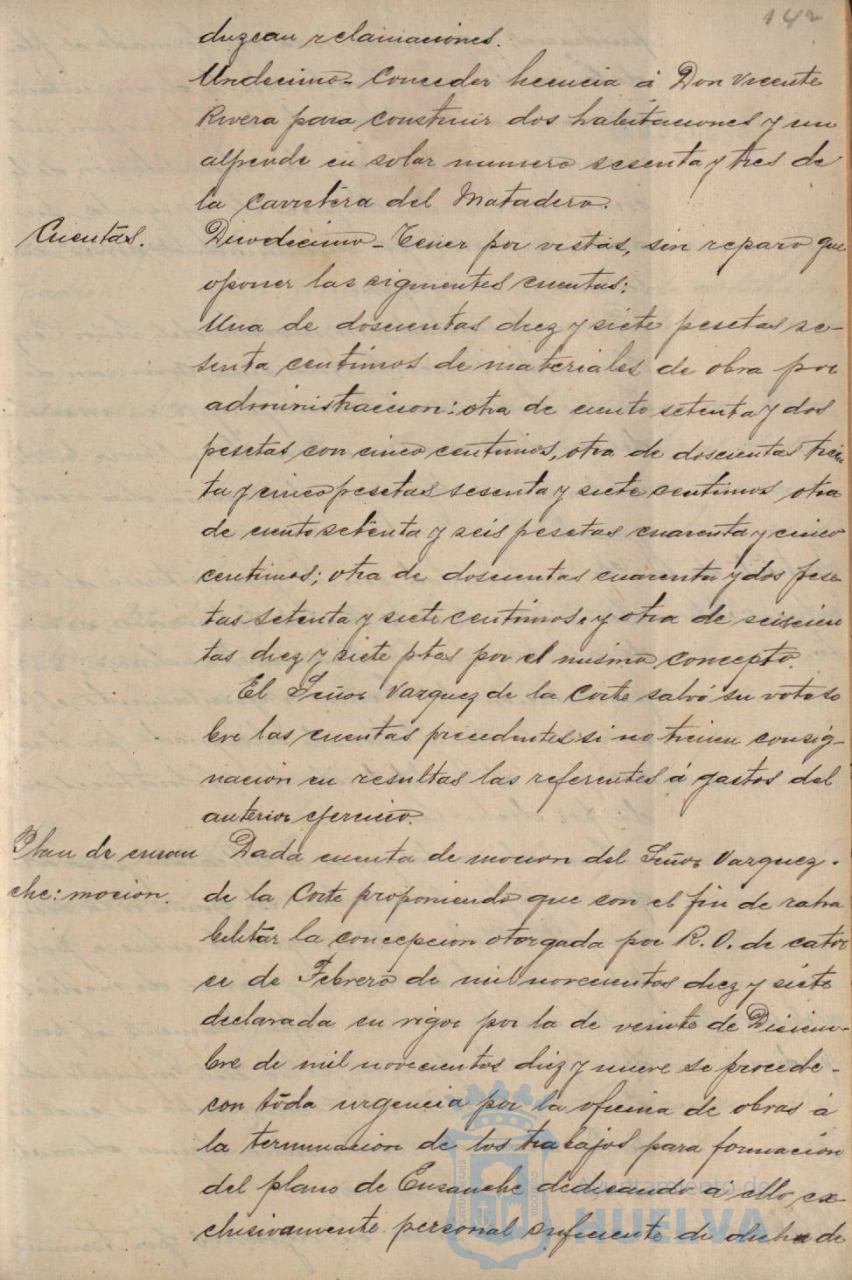 142
duzcan reclamaciones.
Undecimo- Conceder licencia á Don Vicente
Rivera para construir dos habitaciones y un
alpende en solar numero sesenta y tres de
la Carretera del Matadero.
Cuentas.
Duodecimo- Tener por vistas, sin reparo que
oponer las siguientes cuentas:
Una de doscientas diez y siete pesetas se-
senta centimos de materiales de obra por
administracion: otra de ciento setenta y dos
pesetas con cinco centimos, otra de doscientas trein
ta y cinco pesetas sesenta y siete centimos otra
de ciento setenta y seis pesetas cuarenta y cinco
centimos; otra de doscientas cuarenta y dos pese
tas setenta y siete centimos, y otra de seiscien
tas diez y siete ptas por el mismo concepto.
El Señor Vazquez de la Corte salvó su voto so
bre las cuentas precedentes si no tienen consig-
nación en resultas las referentes á gastos del
anterior ejercicio.
Plan de ensan
che: mocion.
Dada cuenta de mocion del Señor Vazquez
de la Corte proponiendo que con el fin de reha
bilitar la concepcion otorgada por R. O. de cator
ce de Febrero de mil novecientos diez y siete
declarada en vigor por la de veinte de Diciem-
bre de mil novecientos diez y nueve se procede-
con toda urgencia por la oficina de obras á
la terminacion de los trabajos para formación
del plano de Ensanche dedicando a ello, ex-
clusivamente personal suficiente de dicha de
Ayuntamiento de
HUELVA